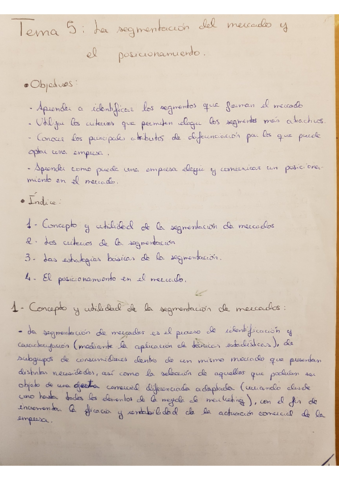 Tema 5: La segmentación del mercado y
el posicionamiento.
• Objetivos:
- Aprender a identificar los segmentos que forman el mercado
- Utilizar los criterios que permiten elegir los segmentos más atractivos.
- Conocer los principales atributos de diferenciación por los que puede
optar una empresa.
- Aprender como puede una empresa elegir y comunicar un posiciona-
miento en el mercado.
• Índice:
1- Concepto y utilidad de la segmentación de mercados
2- Los criterios de la segmentación
3- Las estrategias básicas de la segmentación.
4- El posicionamiento en el mercado.
1- Concepto y utilidad de la segmentación de mercados:
- La segmentación de mercados es el proceso de identificación y
caracterización (mediante la aplicación de técnicas estadísticas), de
subgrupos de consumidores dentro de un mismo mercado que presentan
distintas necesidades, así como la selección de aquellos que podrían ser
objeto de una oferta comercial diferenciada adaptada (variando desde
uno hasta todos los elementos de la mezcla de marketing), con el fin de
incrementar la eficacia y rentabilidad de la actuación comercial de la
empresa.